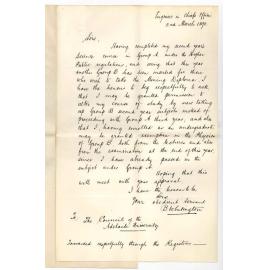 Engineer in Chief's Office
2nd March 1892
Sirs,
Having completed my second year
Science course in Group A under the
regulations, and seeing that this year
another Group B has been inserted for those
who wish to take the Mining Diploma, I
have the honour to beg respectfully to ask
that I may be granted permission to
alter my course of study, by now taking
up Group B second year subjects instead of
proceeding with Group A third year, and also
that I, having enrolled as an undergraduate
may be granted exemption in the Physics
of Group B both from the lectures and also
from the examination at the end of this year
since I have already passed in the
subject under Group A.
Hoping that this
will meet with your approval
I have the honour to be
Sirs
Your obedient Servant
To The Council of the
Adelaide University
Forwarded respectfully through the Registrar